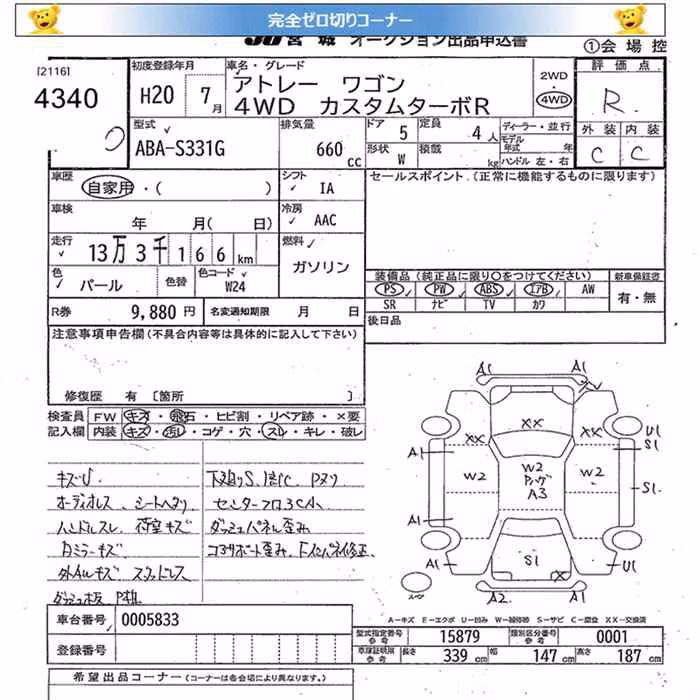 完全ゼロ切りコーナー
JU宮城 オークション出品申込書
①会場控
[2116]
4340
初度登録年月
H20 7月
車名・グレード
アトレー ワゴン
4WD カスタムターボR
2WD
4WD
評価点
R
外装 内装
C C
型式
ABA-S331G
排気量
660 cc
ドア 5
定員 4人
形状 W
積載 kg
ディーラー・並行
モデル年式 年
ハンドル 左・右
車歴
自家用・( )
シフト
IA
セールスポイント (正常に機能するものに限ります)
車検
年 月( 日)
冷房
AAC
走行
13万3千166km
燃料
ガソリン
色
パール
色替
色コード
W24
装備品(純正品に限り○をつけてください)
新車保証書
PS PW ABS エアB AW
SR ナビ TV カワ
有・無
R券
9,880円
名変通知期限 月 日
後日品
注意事項申告欄(不具合内容等は具体的に記入して下さい)
修復歴 有 [箇所 ]
検査員 FW キズ・飛石・ヒビ割・リペア跡・×要
記入欄 内装 キズ・汚レ・コゲ・穴・スレ・キレ・破レ
オーディオレス シートヘタリ
ハンドルスレ 荷室キズ
ダッシュパネル歪み
コアサポート歪み
A1 A1
XX
XX XX
U1
A1 S1
W2 W2 W2 S1
A3
A1
S1
A1 U1
A2 A1
A-キズ E-エクボ U-凹み W-補修跡 S-サビ C-腐食 XX-交換済
車台番号 0005833
登録番号
型式指定番号 参考 15879
類別区分番号 参考 0001
車検証明 参考 長さ 339cm 幅 147cm 高さ 187cm
希望出品コーナー(コーナーは各会場により異なります。)